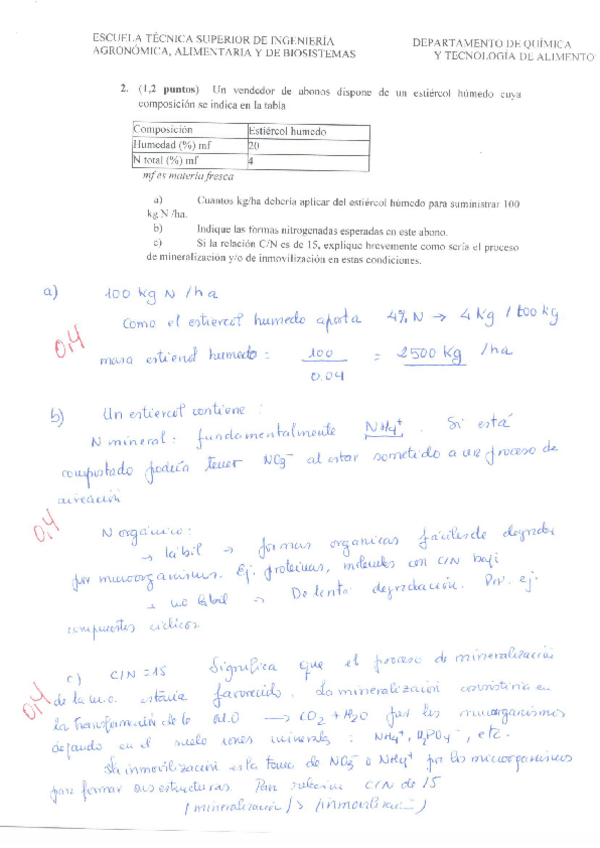 ESCUELA TÉCNICA SUPERIOR DE INGENIERÍA
AGRONÓMICA, ALIMENTARIA Y DE BIOSISTEMAS
DEPARTAMENTO DE QUÍMICA
Y TECNOLOGÍA DE ALIMENTO
2. (1,2 puntos) Un vendedor de abonos dispone de un estiércol húmedo cuya
composición se indica en la tabla
Composición Estiércol humedo
Humedad (%) mf 20
N total (%) mf 4
mf es materia fresca
a) Cuantos kg/ha debería aplicar del estiércol húmedo para suministrar 100
kg N /ha.
b) Indique las formas nitrogenadas esperadas en este abono.
c) Si la relación C/N es de 15, explique brevemente como sería el proceso
de mineralización y/o de inmovilización en estas condiciones.
a) 100 kg N / ha
Como el estiercol humedo aporta 4% N → 4 kg / 100 kg
0,4
masa estiercol humedo : 100 / 0.04 = 2500 kg / ha
b) Un estiercol contiene :
N mineral : fundamentalmente NH4+ . Si está
compostado podría tener NO3- al estar sometido a un proceso de
aireación
0,4
N orgánico :
→ lábil → formas organicas fáciles de degradar
por microorganismos. Ej. proteinas, moleculas con C/N bajo
→ no labil → De lenta degradación. Por. ej.
compuestos ciclicos
c) C/N = 15 Significa que el proceso de mineralización
0,4
de la m.o. estaria favorecido. La mineralización consistiria en
la transformación de la M.O → CO2 + H2O por los microorganismos
dejando en el suelo iones minerales : NH4+, H2PO4-, etc.
La inmovilización es la toma de NO3- o NH4+ por los microorganismos
para formar sus estructuras. Para relación C/N de 15
/mineralización/ > /inmoviliza